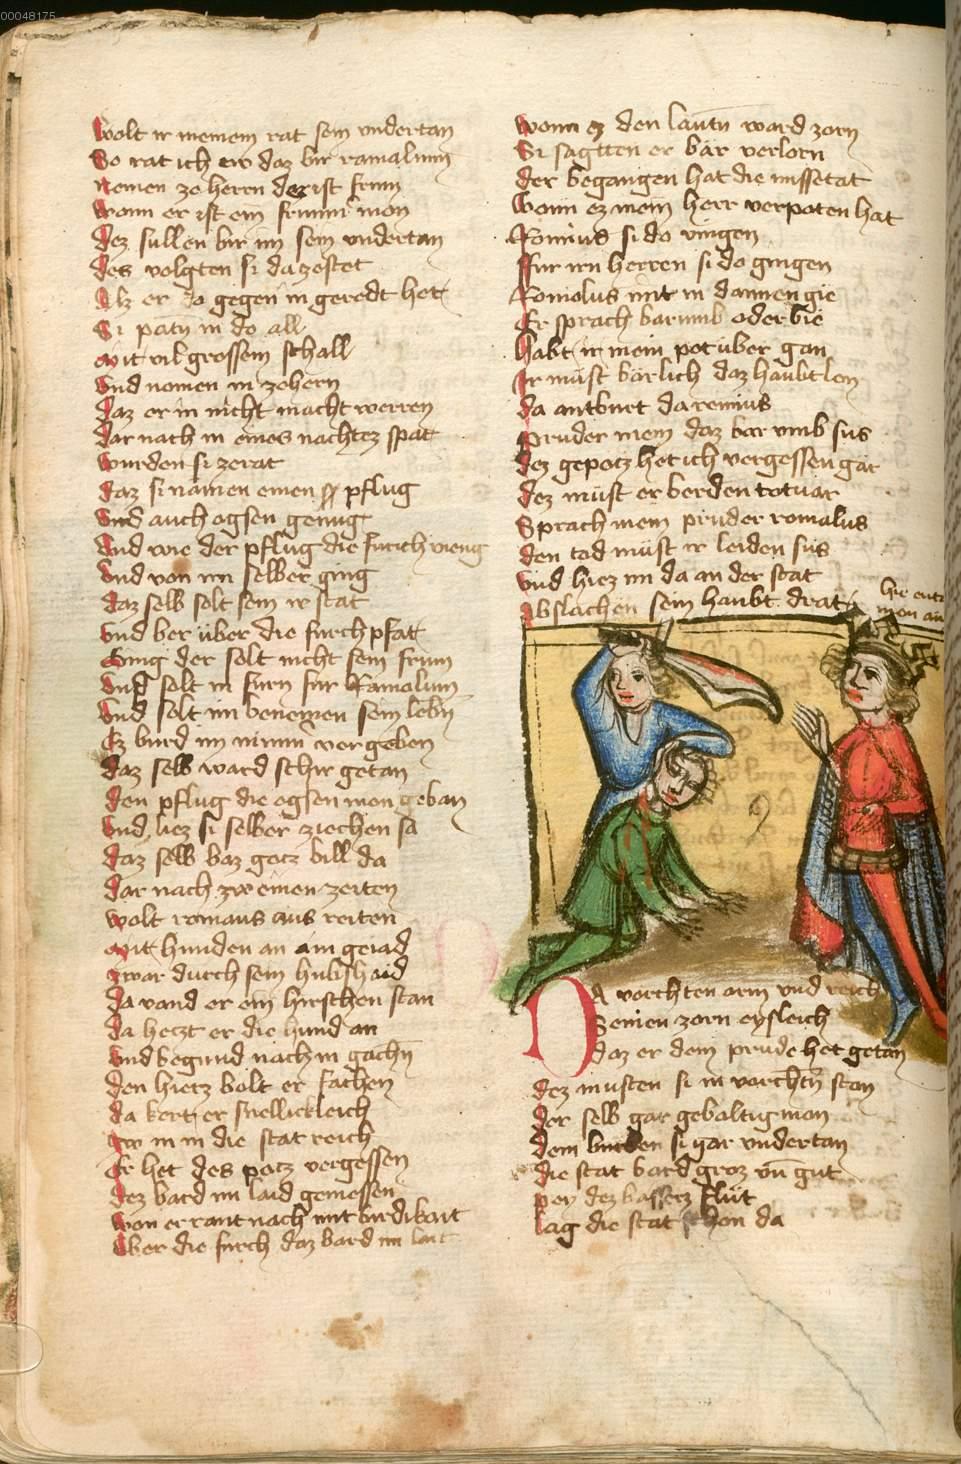 00048175
wolt ir meinem rat sein vndertan
So rat ich ew daz bir ramalum
nemen ze herrn der ist frum
wonn er ist ein frumer mon
dez sullen bir im sein vndertan
des volgten si da ze stet
Alz er do gegen in geredt het
Si patn in do all
mit vil grossem schall
vnd nomen in ze hern
daz er in nicht macht werren
dar nach in eines nachtez spat
wurden si ze rat
daz si namen einen pflug
vnd auch ogsen genug
vnd wie der pflug die furich vieng
vnd von im selber ging
daz selb solt sein ir stat
vnd ber über die furch pfat
Ging der solt nicht sein frum
vnd solt in furn fur Ramalum
vnd solt im benemen sein lebn
Ez burd im nimm vergeben
daz selb ward schir getan
den pflug die ogsen mon geban
vnd liez si selber ziechen sa
daz selb baz gotz bill da
dar nach zw einen zeiten
wolt romaus aus reiten
mit hunden an am geiad
zwar durch sein hubschaid
da vand er ein hirschen stan
da hetzt er die hund an
vnd begund nach in gachn
den hietz bolt er fachen
da kert er snellickleich
zw in in die stat reich
Er het des potz vergessen
dez bard im laid gemessen
won er rant nach mit birdikait
Aber die furch daz bard im lait
wonn ez den lautn ward zorn
Si sagtten er bär verlorn
der begangen hat die missetat
wonn ez mein herr verpoten hat
Romius si do vingen
fur irn herren si do gingen
Romolus mit in dannen gie
Er sprach barumb oder bie
habt ir mein pot über gan
Ir müst bärlich daz haubt lon
da antburt da remius
pruder mein daz bar vmb sus
dez gepotz het ich vergessen gar
dez müst er berden totuar
Sprach mein pruder romalus
den tod müst ir leiden sus
vnd hiez im da an der stat
Abslachen sein haubt drat
hie
mon
DA vorchten arm vnd reich
Seinen zorn eysleich
daz er dem prude het getan
dez musten si in vorchtn stan
der selb gar gebaltig man
dem burden si gar vndertan
die stat bard groz vn gut
pey dez bassers flut
lag die stat schon da